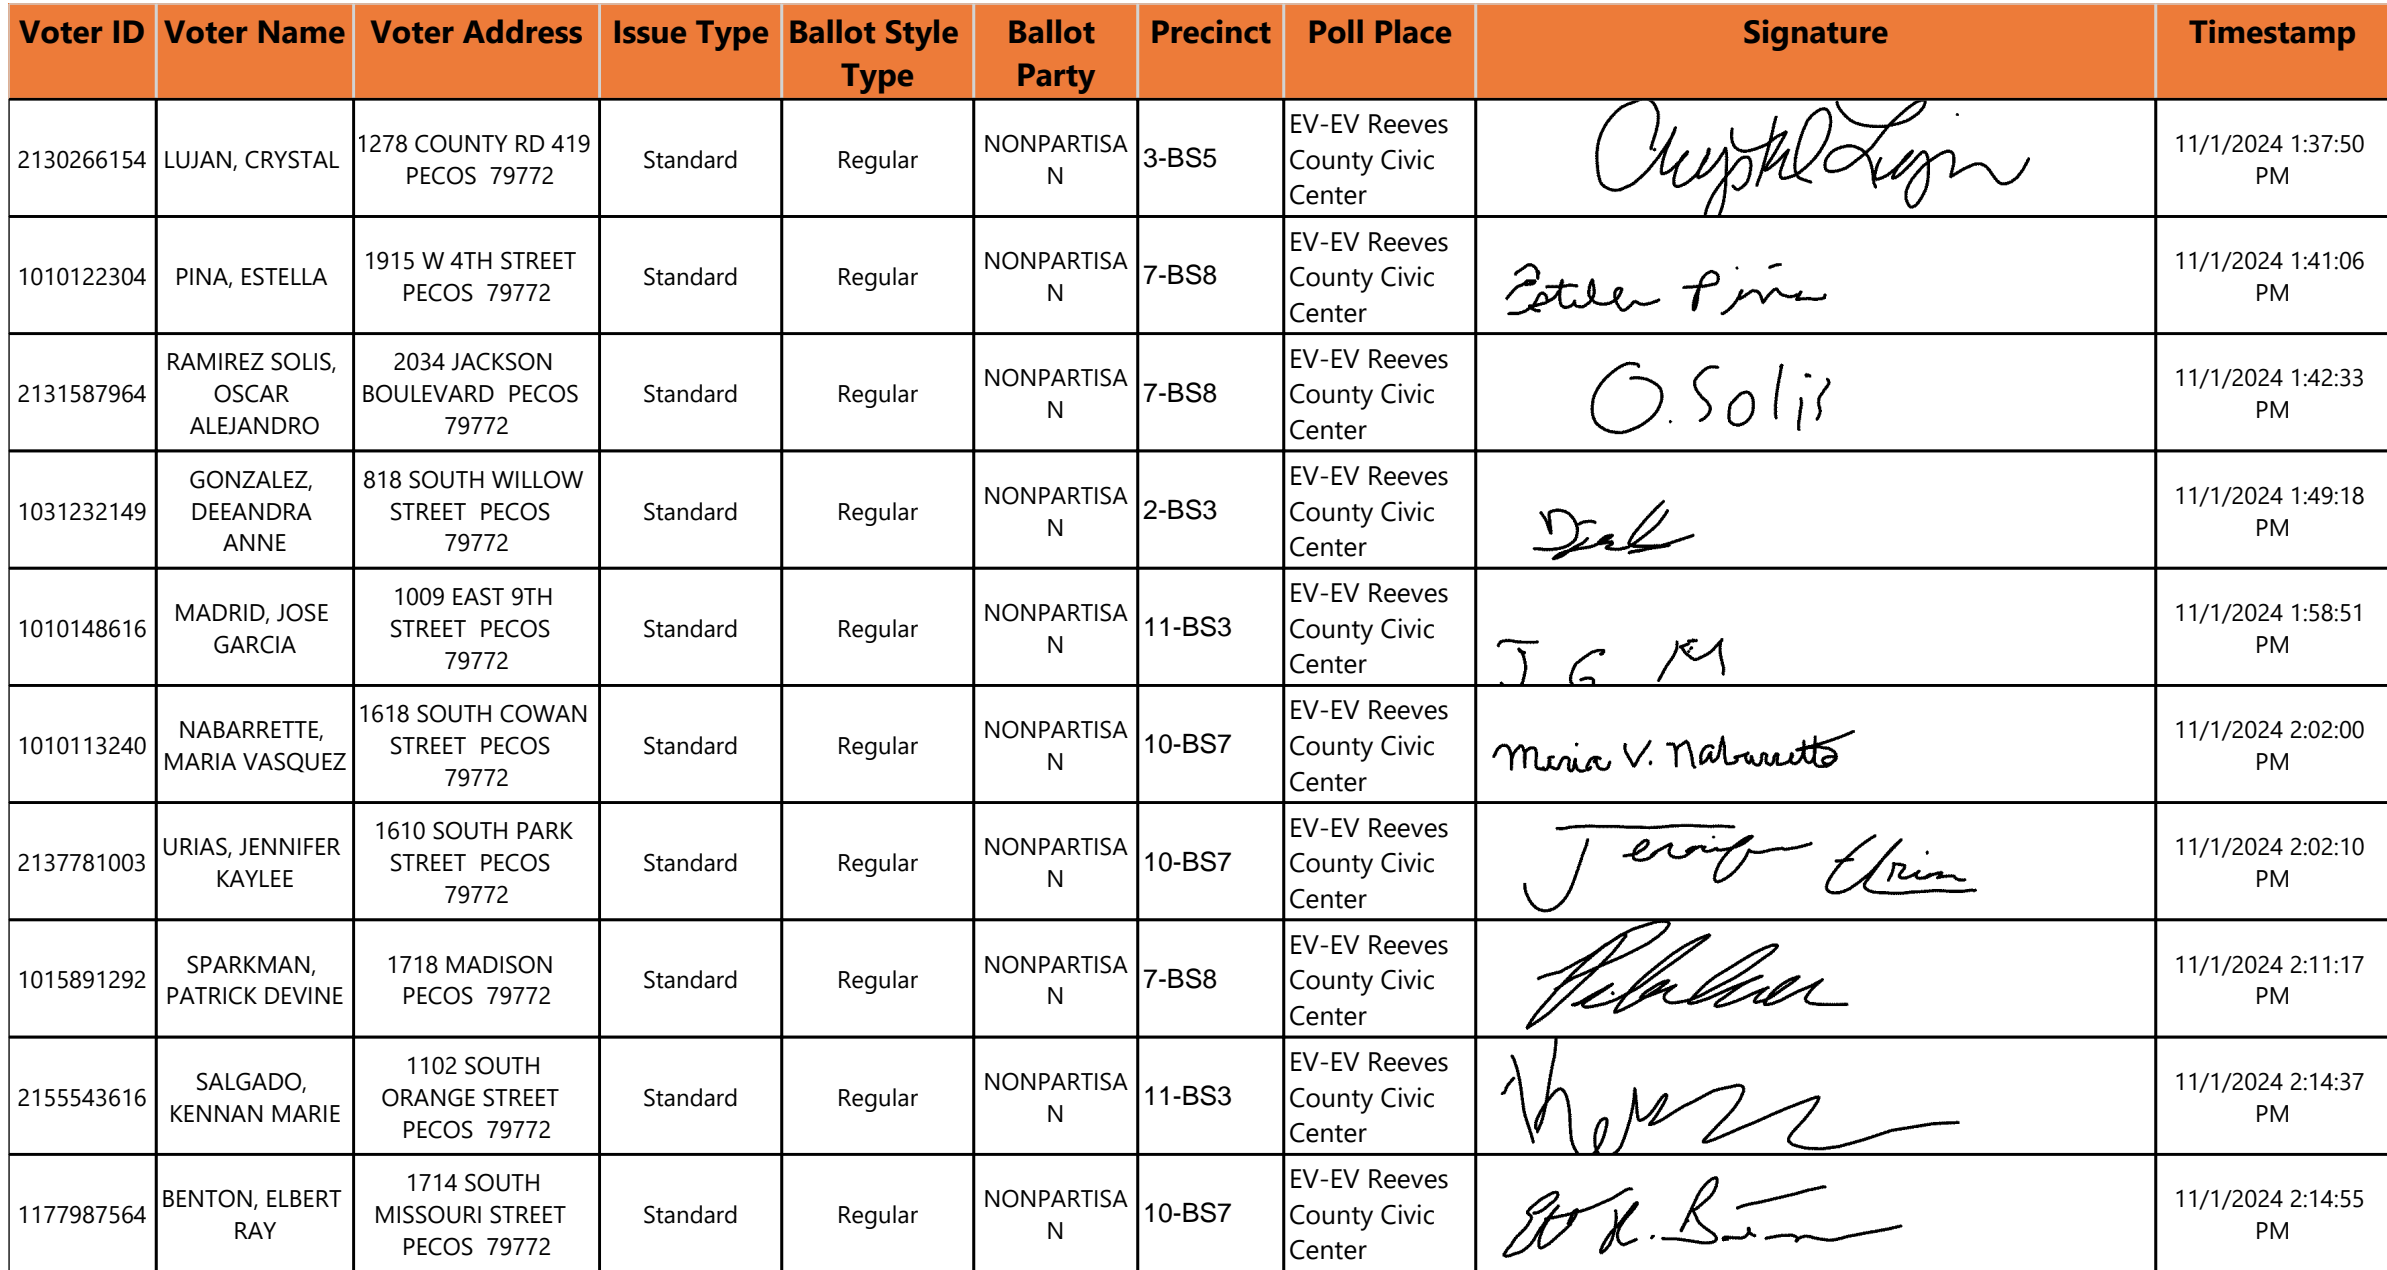 Voter ID Voter Name Voter Address Issue Type Ballot Style Type Ballot Party Precinct Poll Place Signature Timestamp
2130266154 LUJAN, CRYSTAL 1278 COUNTY RD 419 PECOS 79772 Standard Regular NONPARTISAN 3-BS5 EV-EV Reeves County Civic Center Crystal Lujan 11/1/2024 1:37:50 PM
1010122304 PINA, ESTELLA 1915 W 4TH STREET PECOS 79772 Standard Regular NONPARTISAN 7-BS8 EV-EV Reeves County Civic Center Estela Piña 11/1/2024 1:41:06 PM
2131587964 RAMIREZ SOLIS, OSCAR ALEJANDRO 2034 JACKSON BOULEVARD PECOS 79772 Standard Regular NONPARTISAN 7-BS8 EV-EV Reeves County Civic Center O. Solis 11/1/2024 1:42:33 PM
1031232149 GONZALEZ, DEEANDRA ANNE 818 SOUTH WILLOW STREET PECOS 79772 Standard Regular NONPARTISAN 2-BS3 EV-EV Reeves County Civic Center 11/1/2024 1:49:18 PM
1010148616 MADRID, JOSE GARCIA 1009 EAST 9TH STREET PECOS 79772 Standard Regular NONPARTISAN 11-BS3 EV-EV Reeves County Civic Center J G M 11/1/2024 1:58:51 PM
1010113240 NABARRETTE, MARIA VASQUEZ 1618 SOUTH COWAN STREET PECOS 79772 Standard Regular NONPARTISAN 10-BS7 EV-EV Reeves County Civic Center Maria V. Nabarrette 11/1/2024 2:02:00 PM
2137781003 URIAS, JENNIFER KAYLEE 1610 SOUTH PARK STREET PECOS 79772 Standard Regular NONPARTISAN 10-BS7 EV-EV Reeves County Civic Center Jennifer Urias 11/1/2024 2:02:10 PM
1015891292 SPARKMAN, PATRICK DEVINE 1718 MADISON PECOS 79772 Standard Regular NONPARTISAN 7-BS8 EV-EV Reeves County Civic Center 11/1/2024 2:11:17 PM
2155543616 SALGADO, KENNAN MARIE 1102 SOUTH ORANGE STREET PECOS 79772 Standard Regular NONPARTISAN 11-BS3 EV-EV Reeves County Civic Center 11/1/2024 2:14:37 PM
1177987564 BENTON, ELBERT RAY 1714 SOUTH MISSOURI STREET PECOS 79772 Standard Regular NONPARTISAN 10-BS7 EV-EV Reeves County Civic Center 11/1/2024 2:14:55 PM